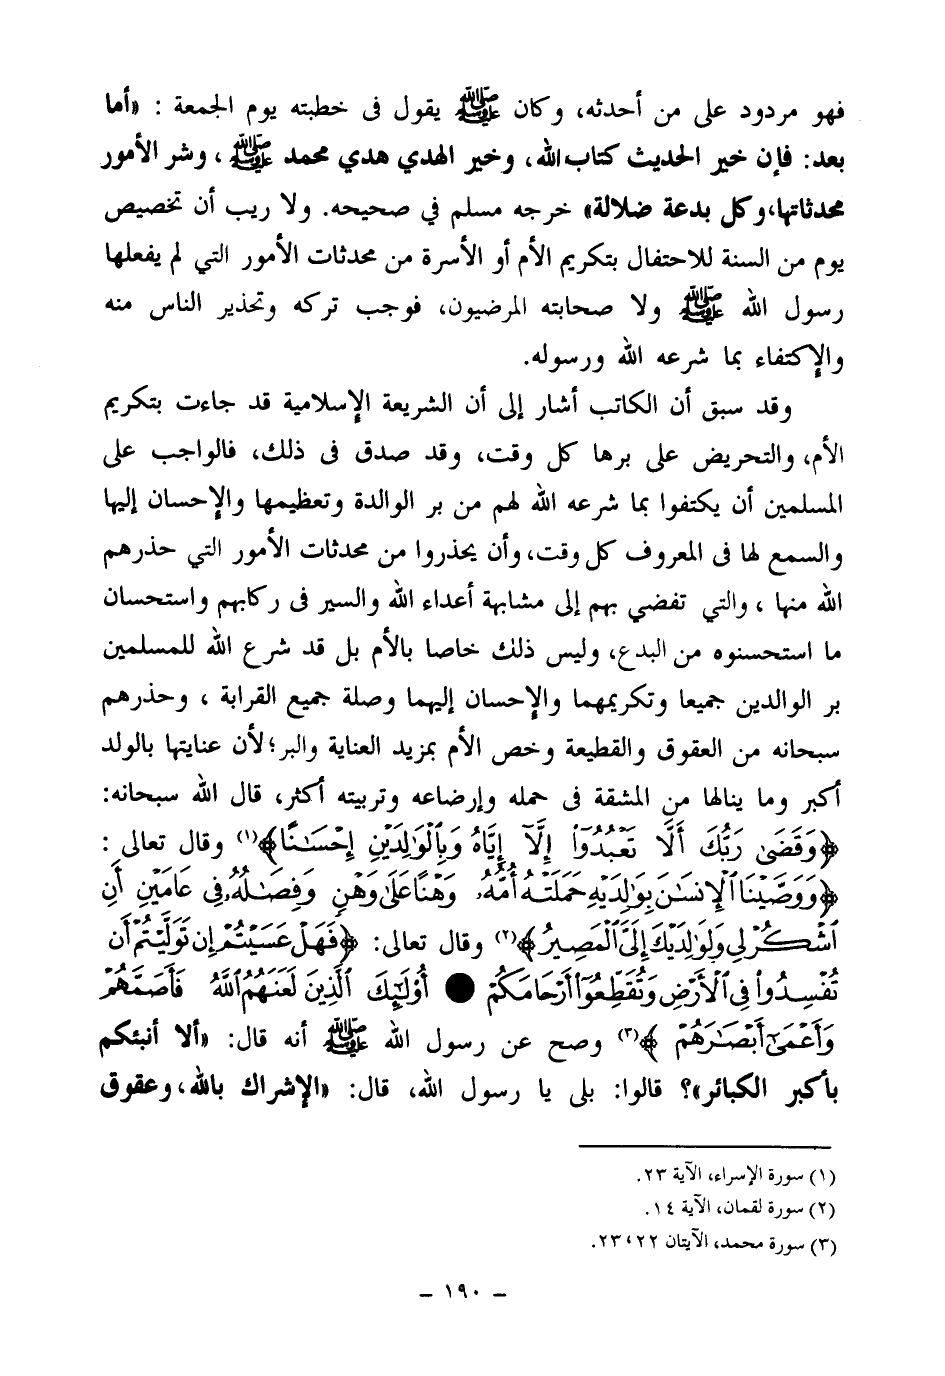 فهو مردود على من أحدثه، وكان ﷺ يقول فى خطبته يوم الجمعة : «أما
بعد: فإن خير الحديث كتاب الله، وخير الهدي هدي محمد ﷺ، وشر الأمور
محدثاتها، وكل بدعة ضلالة» خرجه مسلم في صحيحه. ولا ريب أن تخصيص
يوم من السنة للاحتفال بتكريم الأم أو الأسرة من محدثات الأمور التي لم يفعلها
رسول الله ﷺ ولا صحابته المرضيون، فوجب تركه وتحذير الناس منه
والإكتفاء بما شرعه الله ورسوله.
وقد سبق أن الكاتب أشار إلى أن الشريعة الإسلامية قد جاءت بتكريم
الأم، والتحريض على برها كل وقت، وقد صدق فى ذلك، فالواجب على
المسلمين أن يكتفوا بما شرعه الله لهم من بر الوالدة وتعظيمها والإحسان إليها
والسمع لها فى المعروف كل وقت، وأن يحذروا من محدثات الأمور التي حذرهم
الله منها ، والتي تفضي بهم إلى مشابهة أعداء الله والسير فى ركابهم واستحسان
ما استحسنوه من البدع، وليس ذلك خاصا بالأم بل قد شرع الله للمسلمين
بر الوالدين جميعا وتكريمهما والإحسان إليهما وصلة جميع القرابة ، وحذرهم
سبحانه من العقوق والقطيعة وخص الأم بمزيد العناية والبر؛ لأن عنايتها بالولد
أكبر وما ينالها من المشقة فى حمله وإرضاعه وتربيته أكثر، قال الله سبحانه:
﴿وَقَضَىٰ رَبُّكَ أَلَّا تَعْبُدُوٓا۟ إِلَّآ إِيَّاهُ وَبِٱلْوَٰلِدَيْنِ إِحْسَٰنًا﴾(١) وقال تعالى :
﴿وَوَصَّيْنَا ٱلْإِنسَٰنَ بِوَٰلِدَيْهِ حَمَلَتْهُ أُمُّهُۥ وَهْنًا عَلَىٰ وَهْنٍ وَفِصَٰلُهُۥ فِى عَامَيْنِ أَنِ
ٱشْكُرْ لِى وَلِوَٰلِدَيْكَ إِلَىَّ ٱلْمَصِيرُ﴾(٢) وقال تعالى: ﴿فَهَلْ عَسَيْتُمْ إِن تَوَلَّيْتُمْ أَن
تُفْسِدُوا۟ فِى ٱلْأَرْضِ وَتُقَطِّعُوٓا۟ أَرْحَامَكُمْ ● أُو۟لَٰٓئِكَ ٱلَّذِينَ لَعَنَهُمُ ٱللَّهُ فَأَصَمَّهُمْ
وَأَعْمَىٰٓ أَبْصَٰرَهُمْ﴾(٣) وصح عن رسول الله ﷺ أنه قال: «ألا أنبئكم
بأكبر الكبائر»؟ قالوا: بلى يا رسول الله، قال: «الإشراك بالله، وعقوق
(١) سورة الإسراء، الآية ٢٣.
(٢) سورة لقمان، الآية ١٤.
(٣) سورة محمد، الآيتان ٢٢، ٢٣.
– ١٩٠ –